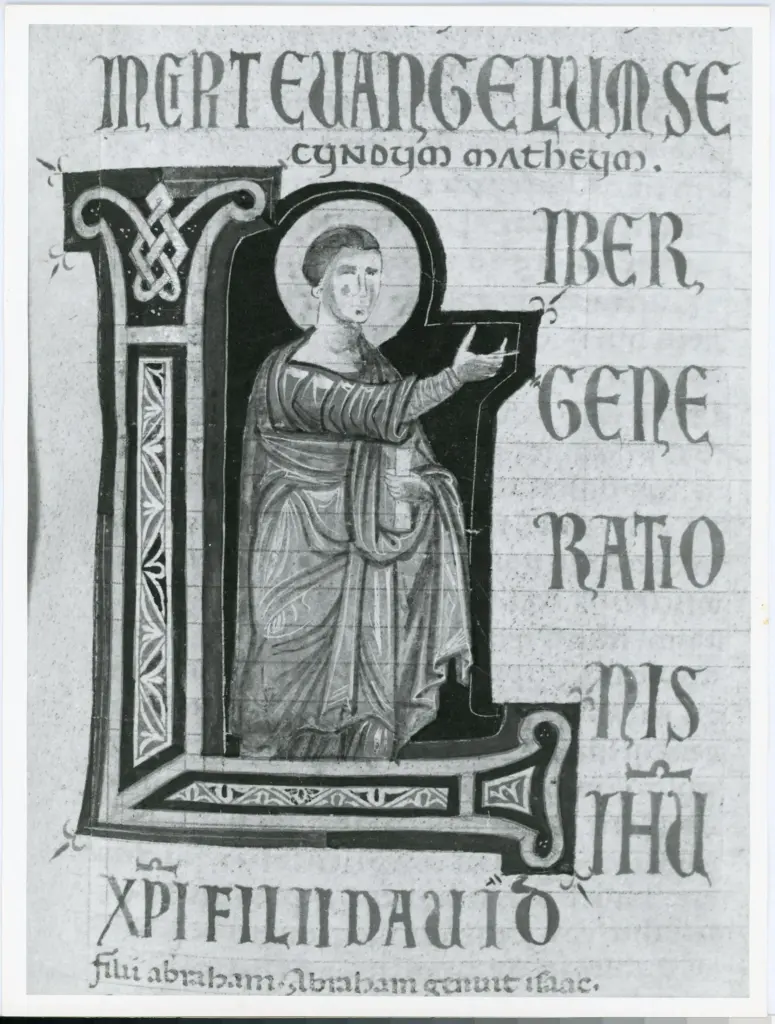 INCIPIT EVANGELIUM SE
CUNDUM MATHEUM.
LIBER
GENE
RATIO
NIS
IHU
XPI FILII DAUID
filii abraham. Abraham genuit isaac.